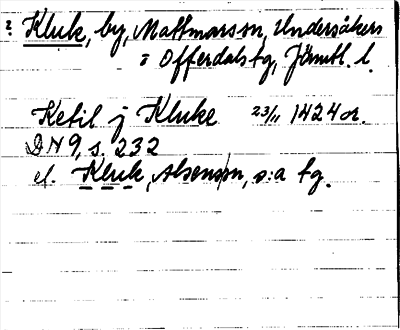 ? Kluk, by, Mattmars sn, Undersåkers
o Offerdals tg, Jämtl. l.
Ketil j Kluke 23/11 1424 or.
DN 9, s. 232
cf. Kluk, Alsens sn, s:a tg.